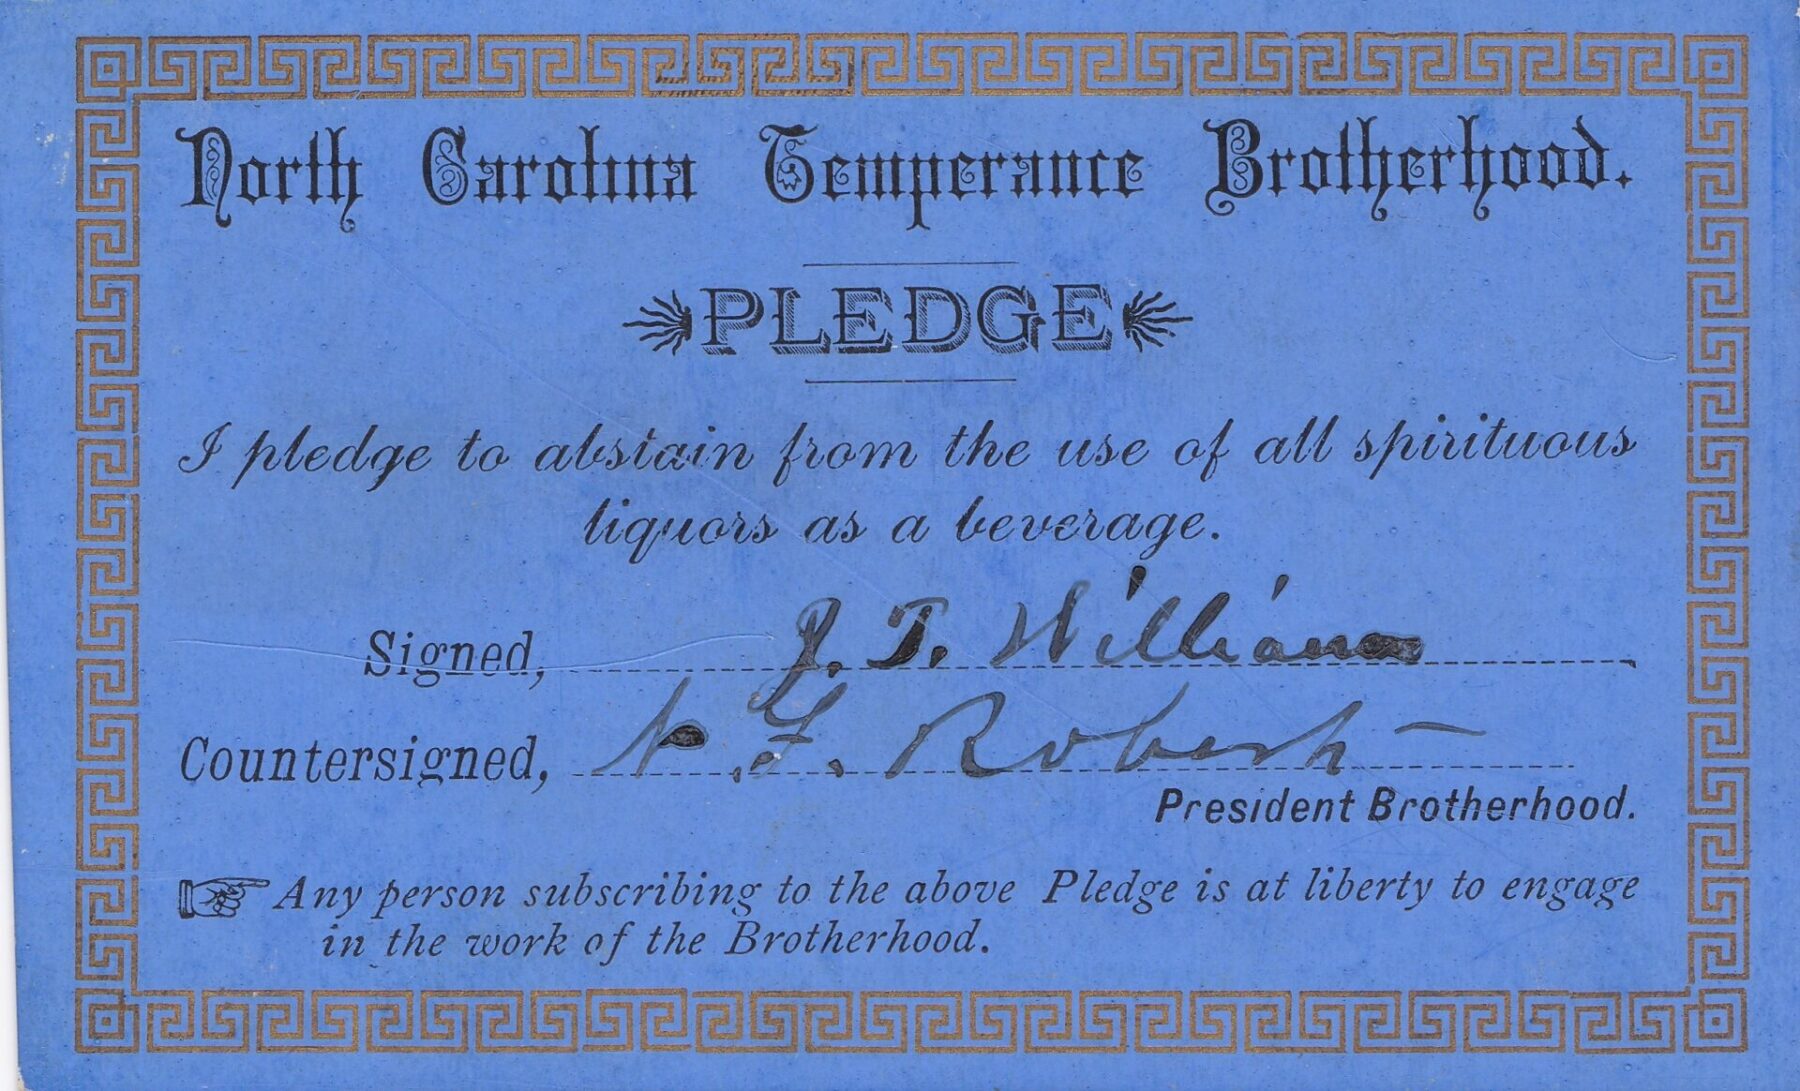 North Carolina Temperance Brotherhood.
PLEDGE
I pledge to abstain from the use of all spirituous
liquors as a beverage.
Signed, J. T. Williams
Countersigned, N. F. Roberts
President Brotherhood.
Any person subscribing to the above Pledge is at liberty to engage
in the work of the Brotherhood.